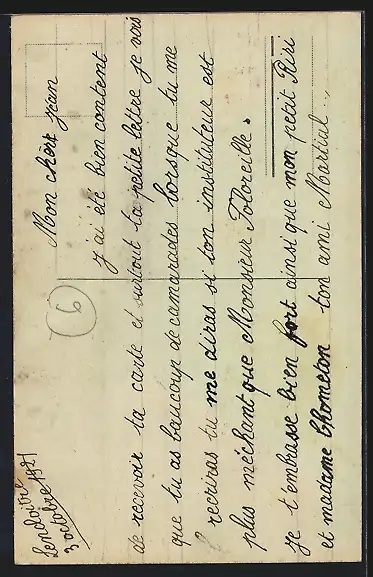 3 octobre 1921
Mon chèr jean
j'ai été bien content
de recevoir ta carte et surtout ta petite lettre je vois
que tu as baucoup de camarades lorsque tu me
recriras tu me diras si ton instituteur est
plus méchant que Monsieur Foloreille.
je t'embrasse bien fort ainsi que mon petit Riri
et madame Chometon ton ami Martial.
6